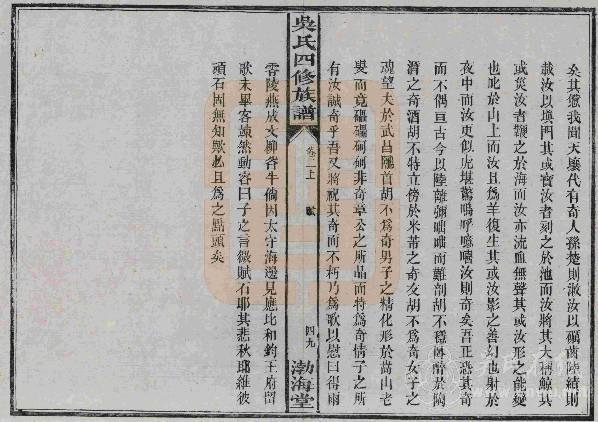 矣其懲我聞天壤代有奇人孫楚則漱汝以礪齒陸績則
載汝以填門其或寶汝者刻之於池而汝將其大鯨其
或災汝者鞭之於海而汝亦流血無聲其或汝形之能變
也庇於山上而汝且為羊復生其或汝影之善幻也射於
夜中而汝更似虎堪驚嗚呼噫嘻汝則奇矣吾正恐其奇
而不偶亘古今以陸離彌而難剖胡不穩醉於陶
潛之奇酒胡不特立傍於米芾之奇交胡不為奇女子之
魂望夫於武昌隴首胡不為奇男子之精化形於嵩山老
叟而竟礧礧砢砢非奇章公之所品而特為奇情子之所
有汝誠奇乎吾又將祝其奇而不朽乃為歌以慰曰得爾
零陵燕放文鄉谷牛倘因太守海邊見應比和鈞王府留
歌未畢客竦然動容曰子之言微賦石耶其悲秋耶維彼
頑石固無知歟必且為之點頭矣
吳氏四修族譜
卷二上
賦
四九
渤海堂